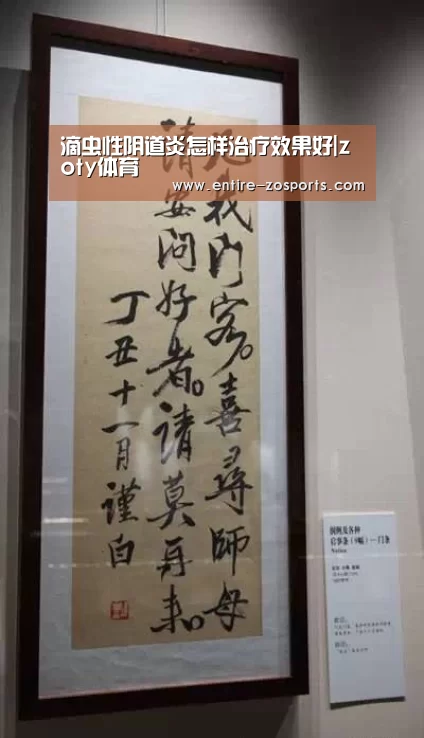 滴虫性阴道炎怎样治疗效果好|z
oty体育
www.entire-zosports.com
凡我门客。喜尋師母
请安问好者。请莫再来。
丁丑十一月谨白
润例及各种
Notice